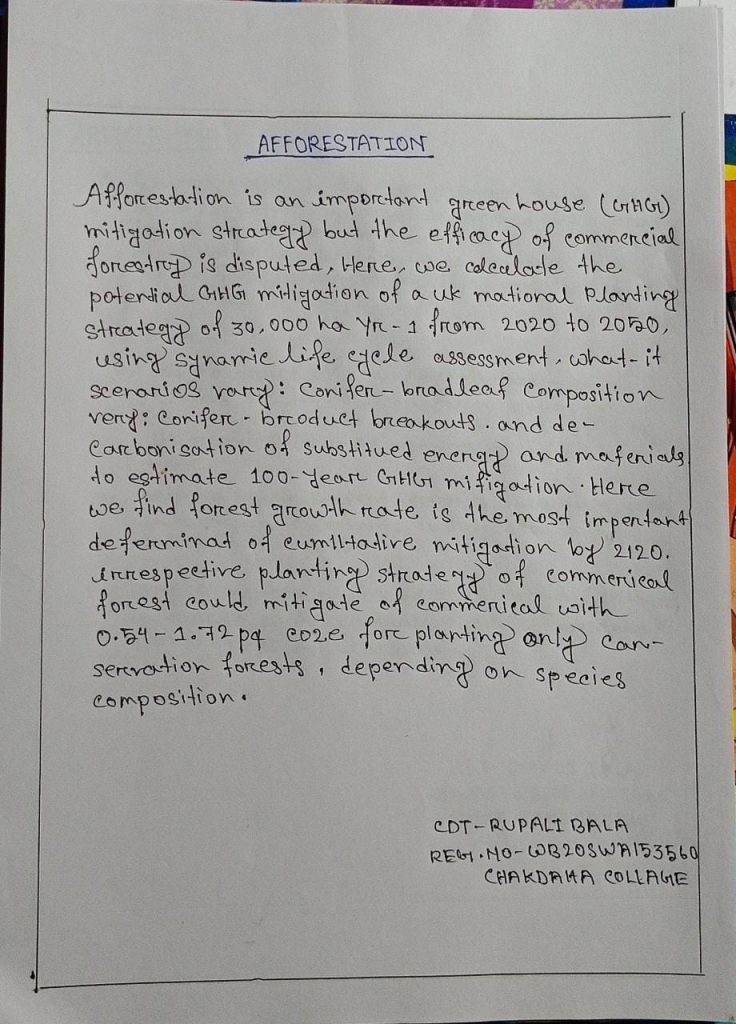 AFFORESTATION
Afforestation is an important greenhouse (GHG)
mitigation strategy but the efficacy of commercial
forestry is disputed, Here, we calculate the
potential GHG mitigation of a uk mational Planting
strategy of 30,000 ha Yr-1 from 2020 to 2050,
using synamic life cycle assessment, what-it
scenarios vary: Conifer-bradleaf composition
very: Conifer - broduct breakouts. and de-
Carbonisation of substitued energy and mafenials
to estimate 100-Year GHG mifigation. Here
we find forest growth rate is the most impentant
deferminat of cumiltative mitigation by 2120.
irrespective planting strategy of commerical
forest could mitigate of commerical with
0.54-1.72 pq co2e for planting only can-
servation forests, depending on species
composition.
CDT-RUPALI BALA
REGI.NO-WB20SWA153560
CHAKDAHA COLLAGE